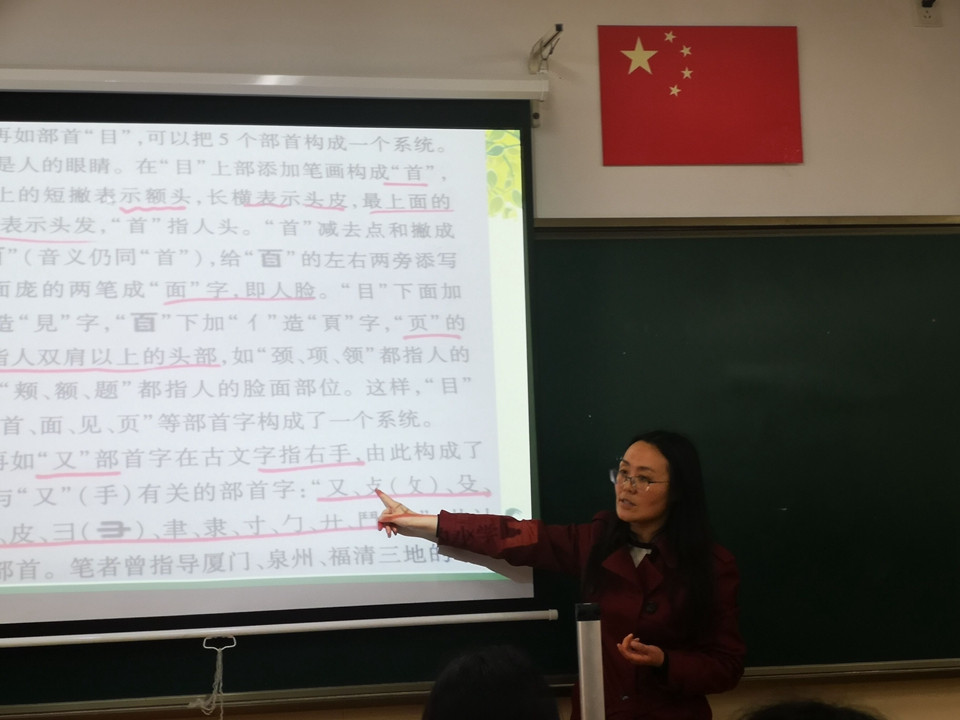 再如部首“目”,可以把5个部首构成一个系统。
是人的眼睛。在“目”上部添加笔画构成“首”,
上的短撇表示额头,长横表示头皮,最上面的
表示头发,“首”指人头。“首”减去点和撇成
”(音义仍同“首”),给“𦣻”的左右两旁添写
面庞的两笔成“面”字,即人脸。“目”下面加
造“見”字,“𦣻”下加“亻”造“頁”字,“页”的
指人双肩以上的头部,如“颈、项、领”都指人的
“颊、额、题”都指人的脸面部位。这样,“目”
首、面、见、页”等部首字构成了一个系统。
再如“又”部首字在古文字指右手,由此构成了
与“又”(手)有关的部首字:“又、攴(攵)、殳、
、皮、彐()、聿、隶、寸、勹、廾、
部首。笔者曾指导厦门、泉州、福清三地的